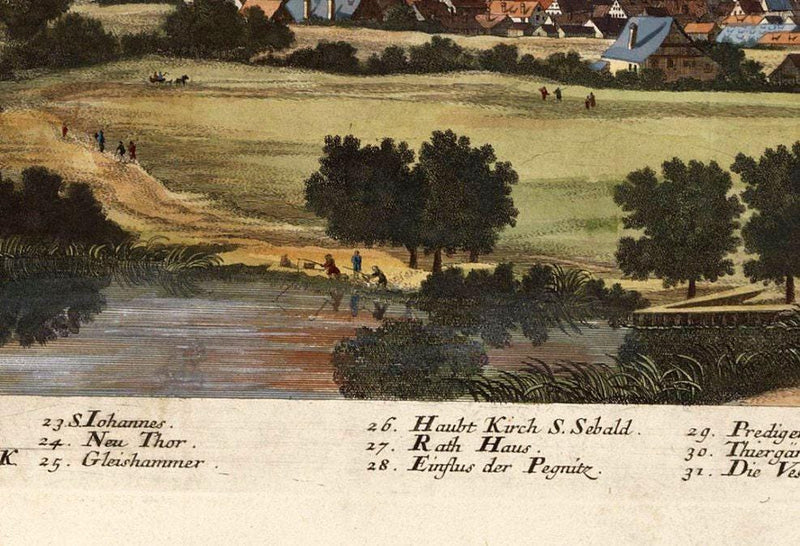 23 S. Iohannes.
24. Neu Thor.
K 25. Gleishammer.
26. Haubt Kirch S. Sebald.
27. Rath Haus.
28. Einflus der Pegnitz.
29.
30.
31. Die